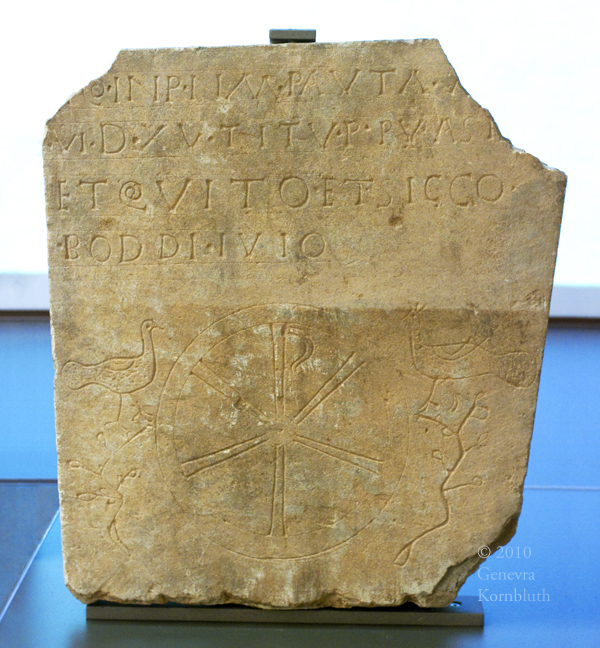 Q·INP·
VI·D·XV·TITVP·PV·
ETQVITO·ET·SICCO·
·BODDI·IVIO
© 2010
Genevra
Kornbluth